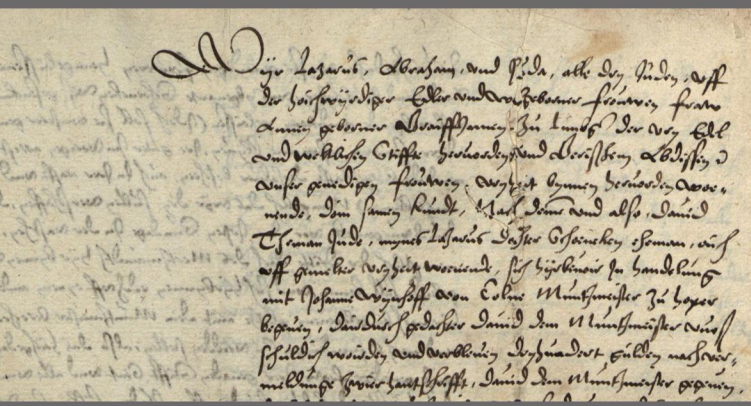 Wyr Lazarus, Abraham, und Juda, alle drey Juden, uff
der hoichwyrdiger Edler und wolgeborner frouwen fraw
Annen geborner Graiffynnen zu Limbg der vry Edl
und weltlichen Stiffte hervorden und Gerisshem Abdissen
unser genedigen frouwen, vryheit bynnen hervorden woe-
nende, doen samen kundt, Nach deme und also, david
Theman Jude, mynes Lazarus dochter Schoeneken eheman, auch
uff gemelter vryheit woenende, sich hyrbevoir In handelung
mit Johanne Wynhoff von Colne Muntzmeister zu hoxer
begeven, dairdurch gedachter david dem Muntzmeister
schuldich worden und verbleven dryhundert gulden nach ver-
meldunge zwier hantschrifft, david dem Muntzmeister gegeven,